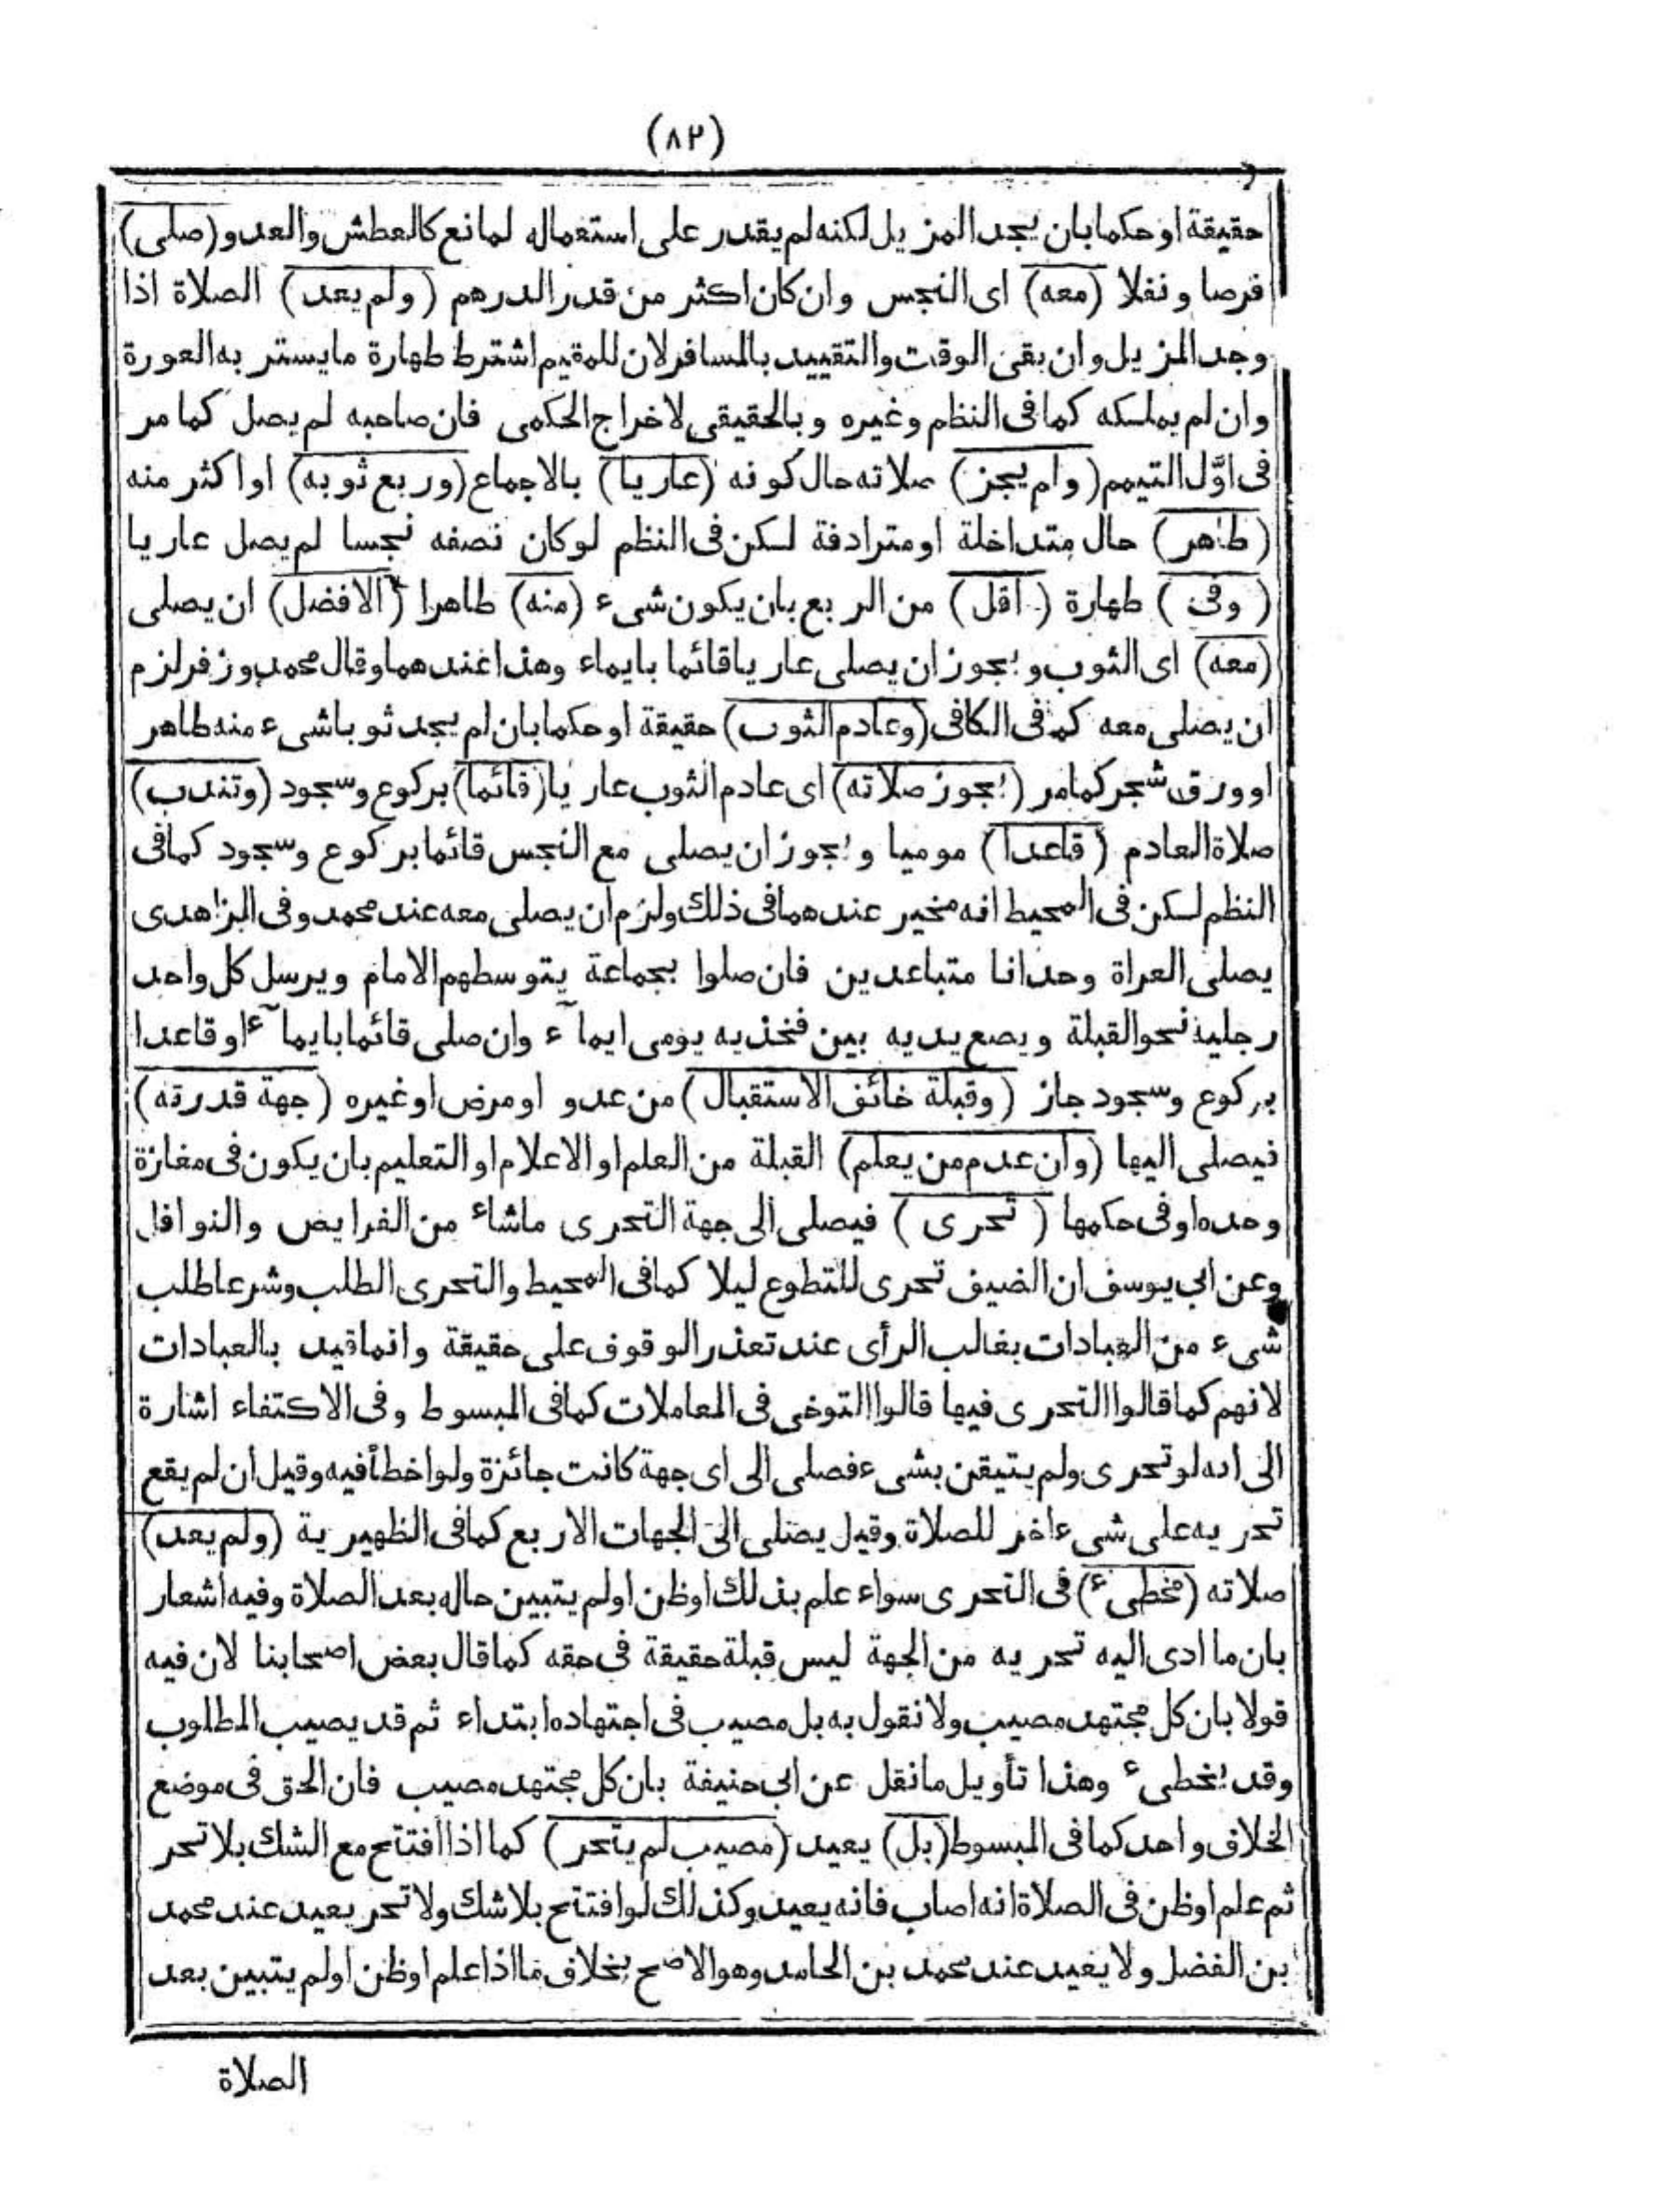 (٨٢)
حقيقة او حكما بان يجد المزيل لكنه لم يقدر على استعماله لمانع كالعطش والعدو (صلى)
فرضا ونفلا (معه) اى النجس وان كان اكثر من قدر الدرهم (ولم يعد) الصلاة اذا
وجد المزيل وان بقى الوقت والتقييد بالمسافر لان للمقيم اشترط طهارة مايستر به العورة
وان لم يملكه كما فى النظم وغيره وبالحقيقى لاخراج الحكمى فان صاحبه لم يصل كما مر
فى اوّل التيمم (ولم يجز) صلاته حال كونه (عاريا) بالاجماع (وربع ثوبه) او اكثر منه
(طاهر) حال متداخلة او مترادفة لكن فى النظم لو كان نصفه نجسا لم يصل عاريا
(وفى) طهارة (اقل) من الربع بان يكون شىء (منه) طاهرا (الافضل) ان يصلى
(معه) اى الثوب ويجوز ان يصلى عاريا قائما بايماء وهذا عندهما وقال محمد وزفر لزم
ان يصلى معه كما فى الكافى (وعادم الثوب) حقيقة او حكما بان لم يجد ثوبا شىء منه طاهر
او ورق شجر كمامر (يجوز صلاته) اى عادم الثوب عاريا (قائما) بركوع وسجود (وتندب)
صلاة العادم (قاعدا) موميا ويجوز ان يصلى مع النجس قائما بركوع وسجود كمافى
النظم لكن فى المحيط انه مخير عندهما فى ذلك ولزم ان يصلى معه عند محمد وفى الزاهدى
يصلى العراة وحدانا متباعدين فان صلوا بجماعة يتوسطهم الامام ويرسل كل واحد
رجليه نحو القبلة ويضع يديه بين فخذيه يومى ايماء وان صلى قائما بايماء او قاعدا
بركوع وسجود جاز (وقبلة خائف الاستقبال) من عدو او مرض او غيره (جهة قدرته)
فيصلى اليها (وان عدم من يعلم) القبلة من العلم او الاعلام او التعليم بان يكون فى مفازة
وحده او فى حكمها (تحرى) فيصلى الى جهة التحرى ماشاء من الفرايض والنوافل
وعن ابى يوسف ان الضيف تحرى للتطوع ليلا كمافى المحيط والتحرى الطلب وشرعا طلب
شىء من العبادات بغالب الرأى عند تعذر الوقوف على حقيقة وانما قيد بالعبادات
لانهم كما قالوا التحرى فيها قالوا التوخى فى المعاملات كمافى المبسوط وفى الاكتفاء اشارة
الى انه لو تحرى ولم يتيقن بشىء فصلى الى اى جهة كانت جائزة ولو اخطأ فيه وقيل ان لم يقع
تحريه على شىء اخر للصلاة وقيل يصلى الى الجهات الاربع كمافى الظهيرية (ولم يعد)
صلاته (مخطىء) فى التحرى سواء علم بذلك او ظن او لم يتبين حاله بعد الصلاة وفيه اشعار
بان ما ادى اليه تحريه من الجهة ليس قبلة حقيقة فى حقه كما قال بعض اصحابنا لان فيه
قولا بان كل مجتهد مصيب ولا نقول به بل مصيب فى اجتهاده ابتداء ثم قد يصيب المطلوب
وقد يخطىء وهذا تأويل مانقل عن ابى حنيفة بان كل مجتهد مصيب فان الحق فى موضع
الخلاف واحد كمافى المبسوط (بل) يعيد (مصيب لم يتحر) كما اذا افتتح مع الشك بلا تحر
ثم علم او ظن فى الصلاة انه اصاب فانه يعيد وكذلك لو افتتح بلا شك ولا تحر يعيد عند محمد
بن الفضل ولا يعيد عند محمد بن الحامد وهو الاصح بخلاف ما اذا علم او ظن او لم يتبين بعد
الصلاة